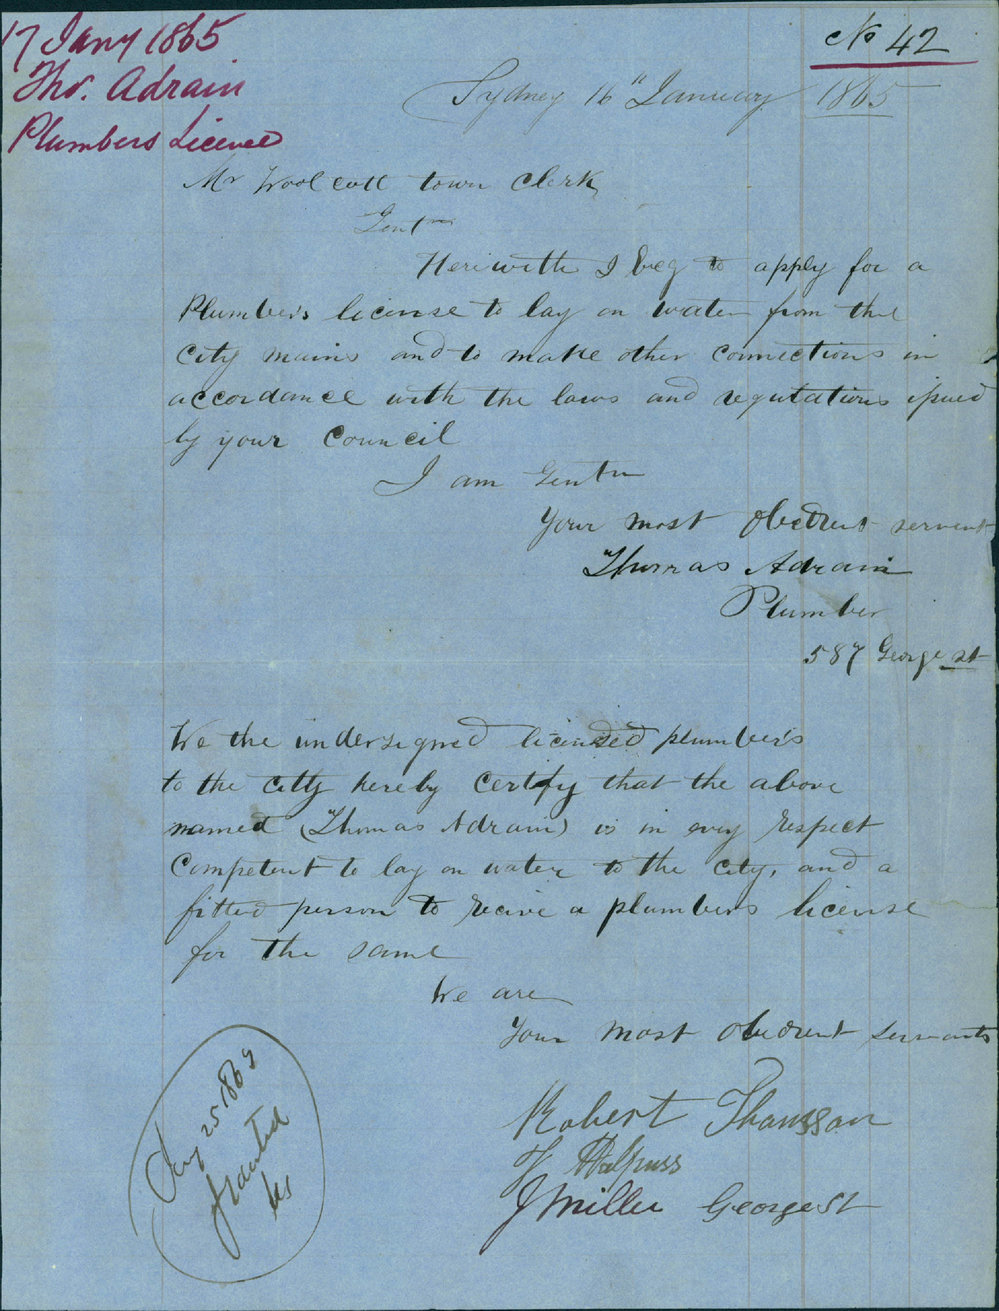 17 Jany 1865
Thos. Adrain
Plumbers Licence
No 42
Sydney 16" January 1865
Mr Woolcott town Clerk
Gentn
Herewith I beg to apply for a
Plumbers license to lay on water from the
City mains and to make other connections in
accordance with the laws and regulations issued
by your Council
I am Gentn
Your most obedient servent
Thomas Adrain
Plumber
587 George st
We the undersigned licensed plumbers
to the citty hereby certify that the above
named (Thomas Adrain) is in evry respect
Competent to lay on water to the City, and a
fitted person to recive a plumbers license
for the same
We are
Your most obedient servants
Robert Thomsson
J Miller George St
Jany 25 1865
Granted